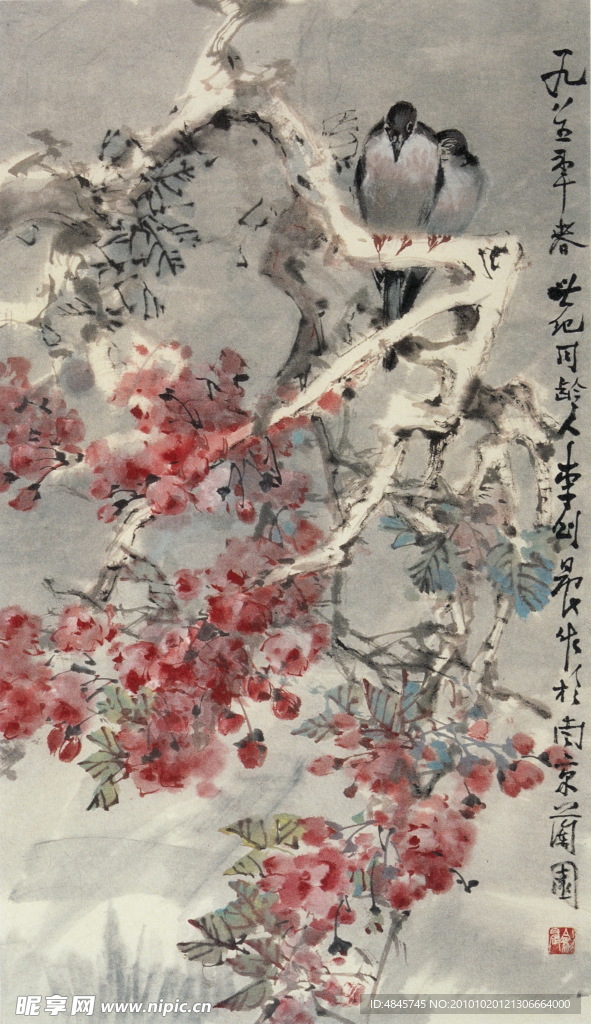 一九八五年春 世纪同龄人李剑晨作於南京蘭園
昵享网 www.nipic.cn
ID:4845745 NO:20101020121306664000